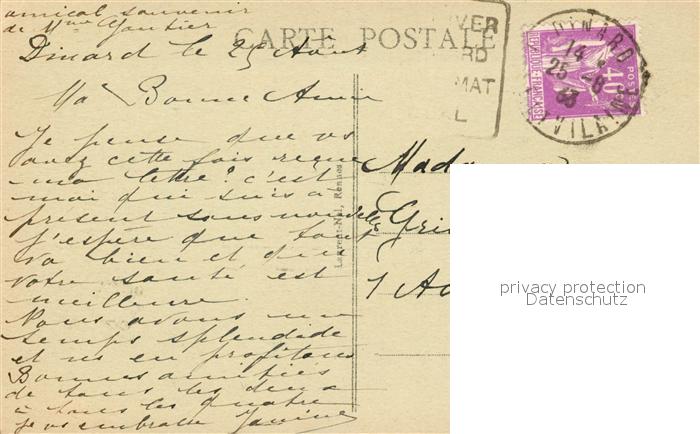 amical souvenir
de Mme Gautier
CARTE POSTALE
Dinard le 25 Août
Ma Bonne Amie
Je pense que vs
avez cette fois reçue
ma lettre? c'est
moi qui suis à
présent sans nouvelle
J'espère que tout
va bien et que
votre santé est
meilleure.
Nous avons un
temps splendide
et ns en profitons
Bonnes amitiés
de tous les deux
à tous les quatre
je vs embrasse Janine
Laurent-Nel, Rennes
VER
RD
MAT
L
DINARD
14
25 -8
33
VILAINE
POSTES
40c
REPUBLIQUE FRANÇAISE
Mada
Gri
1 A
privacy protection
Datenschutz